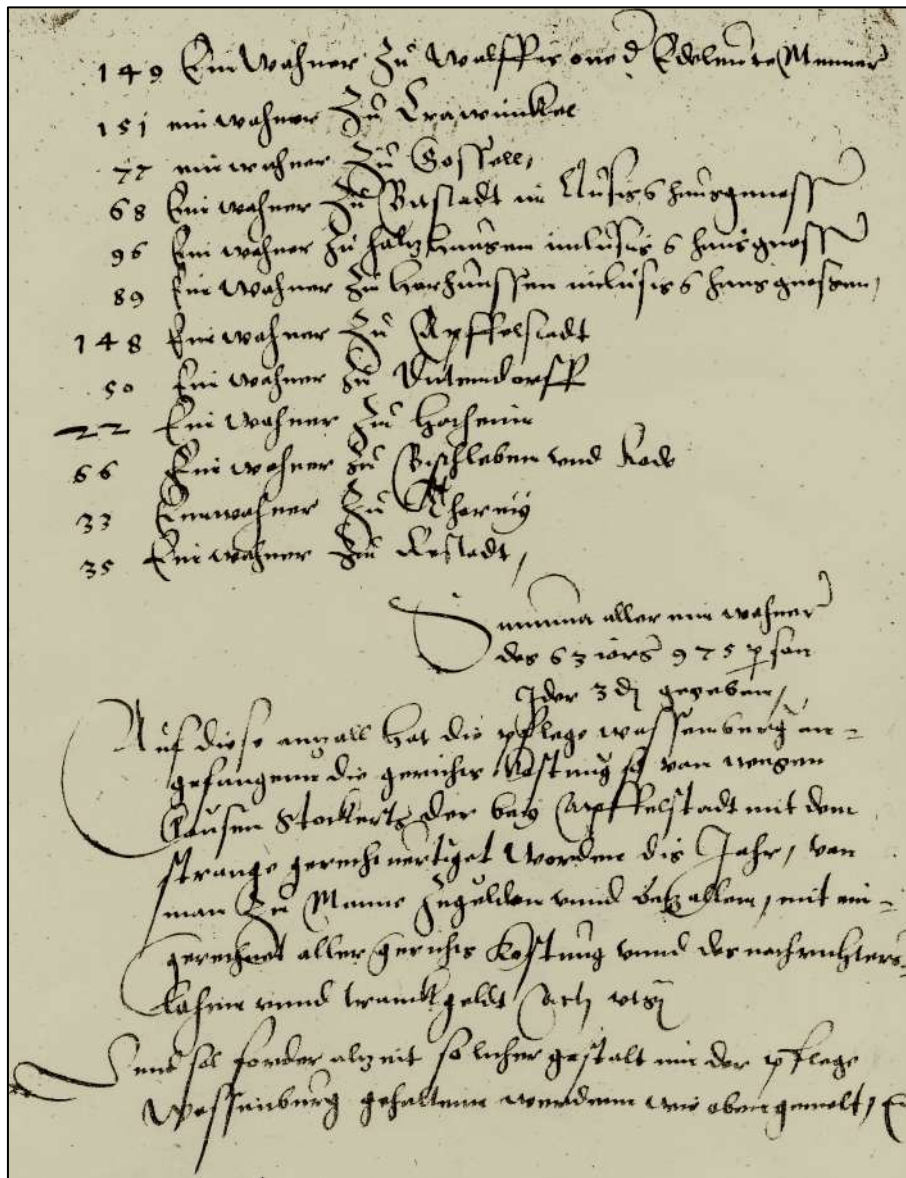 149 Einwahner Zu Walffis one d Edelleute Menner
151 einwahner Zu Crawinckel
77 einwahner Zu Gossell,
68 Einwahner Zu Bitstadt in Clusis 6 hausgenoss
96 Einwahner Zu holzhausen inclusis 6 hausgnoss
89 Einwahner Zu Harhaussen inclusis 6 hausgnossen,
148 Einwahner Zu Apffelstadt
50 Einwahner Zu Dittendorff
22 Einwahner Zu Hocheim
66 Einwahner Zu Bischleben vnd Rode
33 Einwahner Zu
35 Einwahner Zu Restadt,
Summa aller einwahner
des 63 iars 975 p̱son
Jder 3 d gegeben,
Auf diese anzall hat die pflege wassenburg an=
gefangenn die gerichts Kostung so von wegen
Clausen Stockerts der bey Apffelstadt mit dem
strange gerechtuertiget worden dis Jahr, von
man Zu Manne Zugelden vnnd bezallen, mit ein=
gerechnet aller gerichts Kostung vnnd des nachrichters=
lohnn vnnd tranckgeldt
Vnnd sol forder alzeit solicher gestalt inn der pflege
Wassenburg gehaltenn werdenn wie oben gemelt,